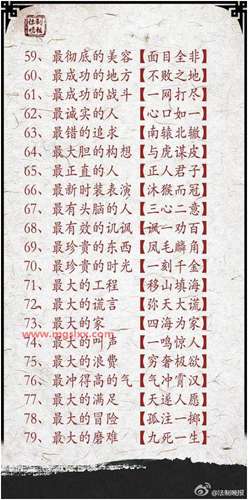 59、最彻底的美容【面目全非】
60、最成功的地方【不败之地】
61、最成功的战斗【一网打尽】
62、最诚实的人【心口如一】
63、最错的追求【南辕北辙】
64、最大胆的构想【与虎谋皮】
65、最正直的人【正人君子】
66、最新时装表演【沐猴而冠】
67、最有头脑的人【三心二意】
68、最有效的讥讽【诫一功百】
69、最珍贵的东西【凤毛麟角】
70、最珍贵的时光【一刻千金】
71、最大的工程【移山填海】
72、最大的谎言【弥天大谎】
73、最大的家【四海为家】
74、最大的叫声【一鸣惊人】
75、最大的浪费【穷奢极欲】
76、最冲得高的气【气冲霄汉】
77、最大的满足【天遂人愿】
78、最大的冒险【孤注一掷】
79、最大的磨难【九死一生】
@法制晚报